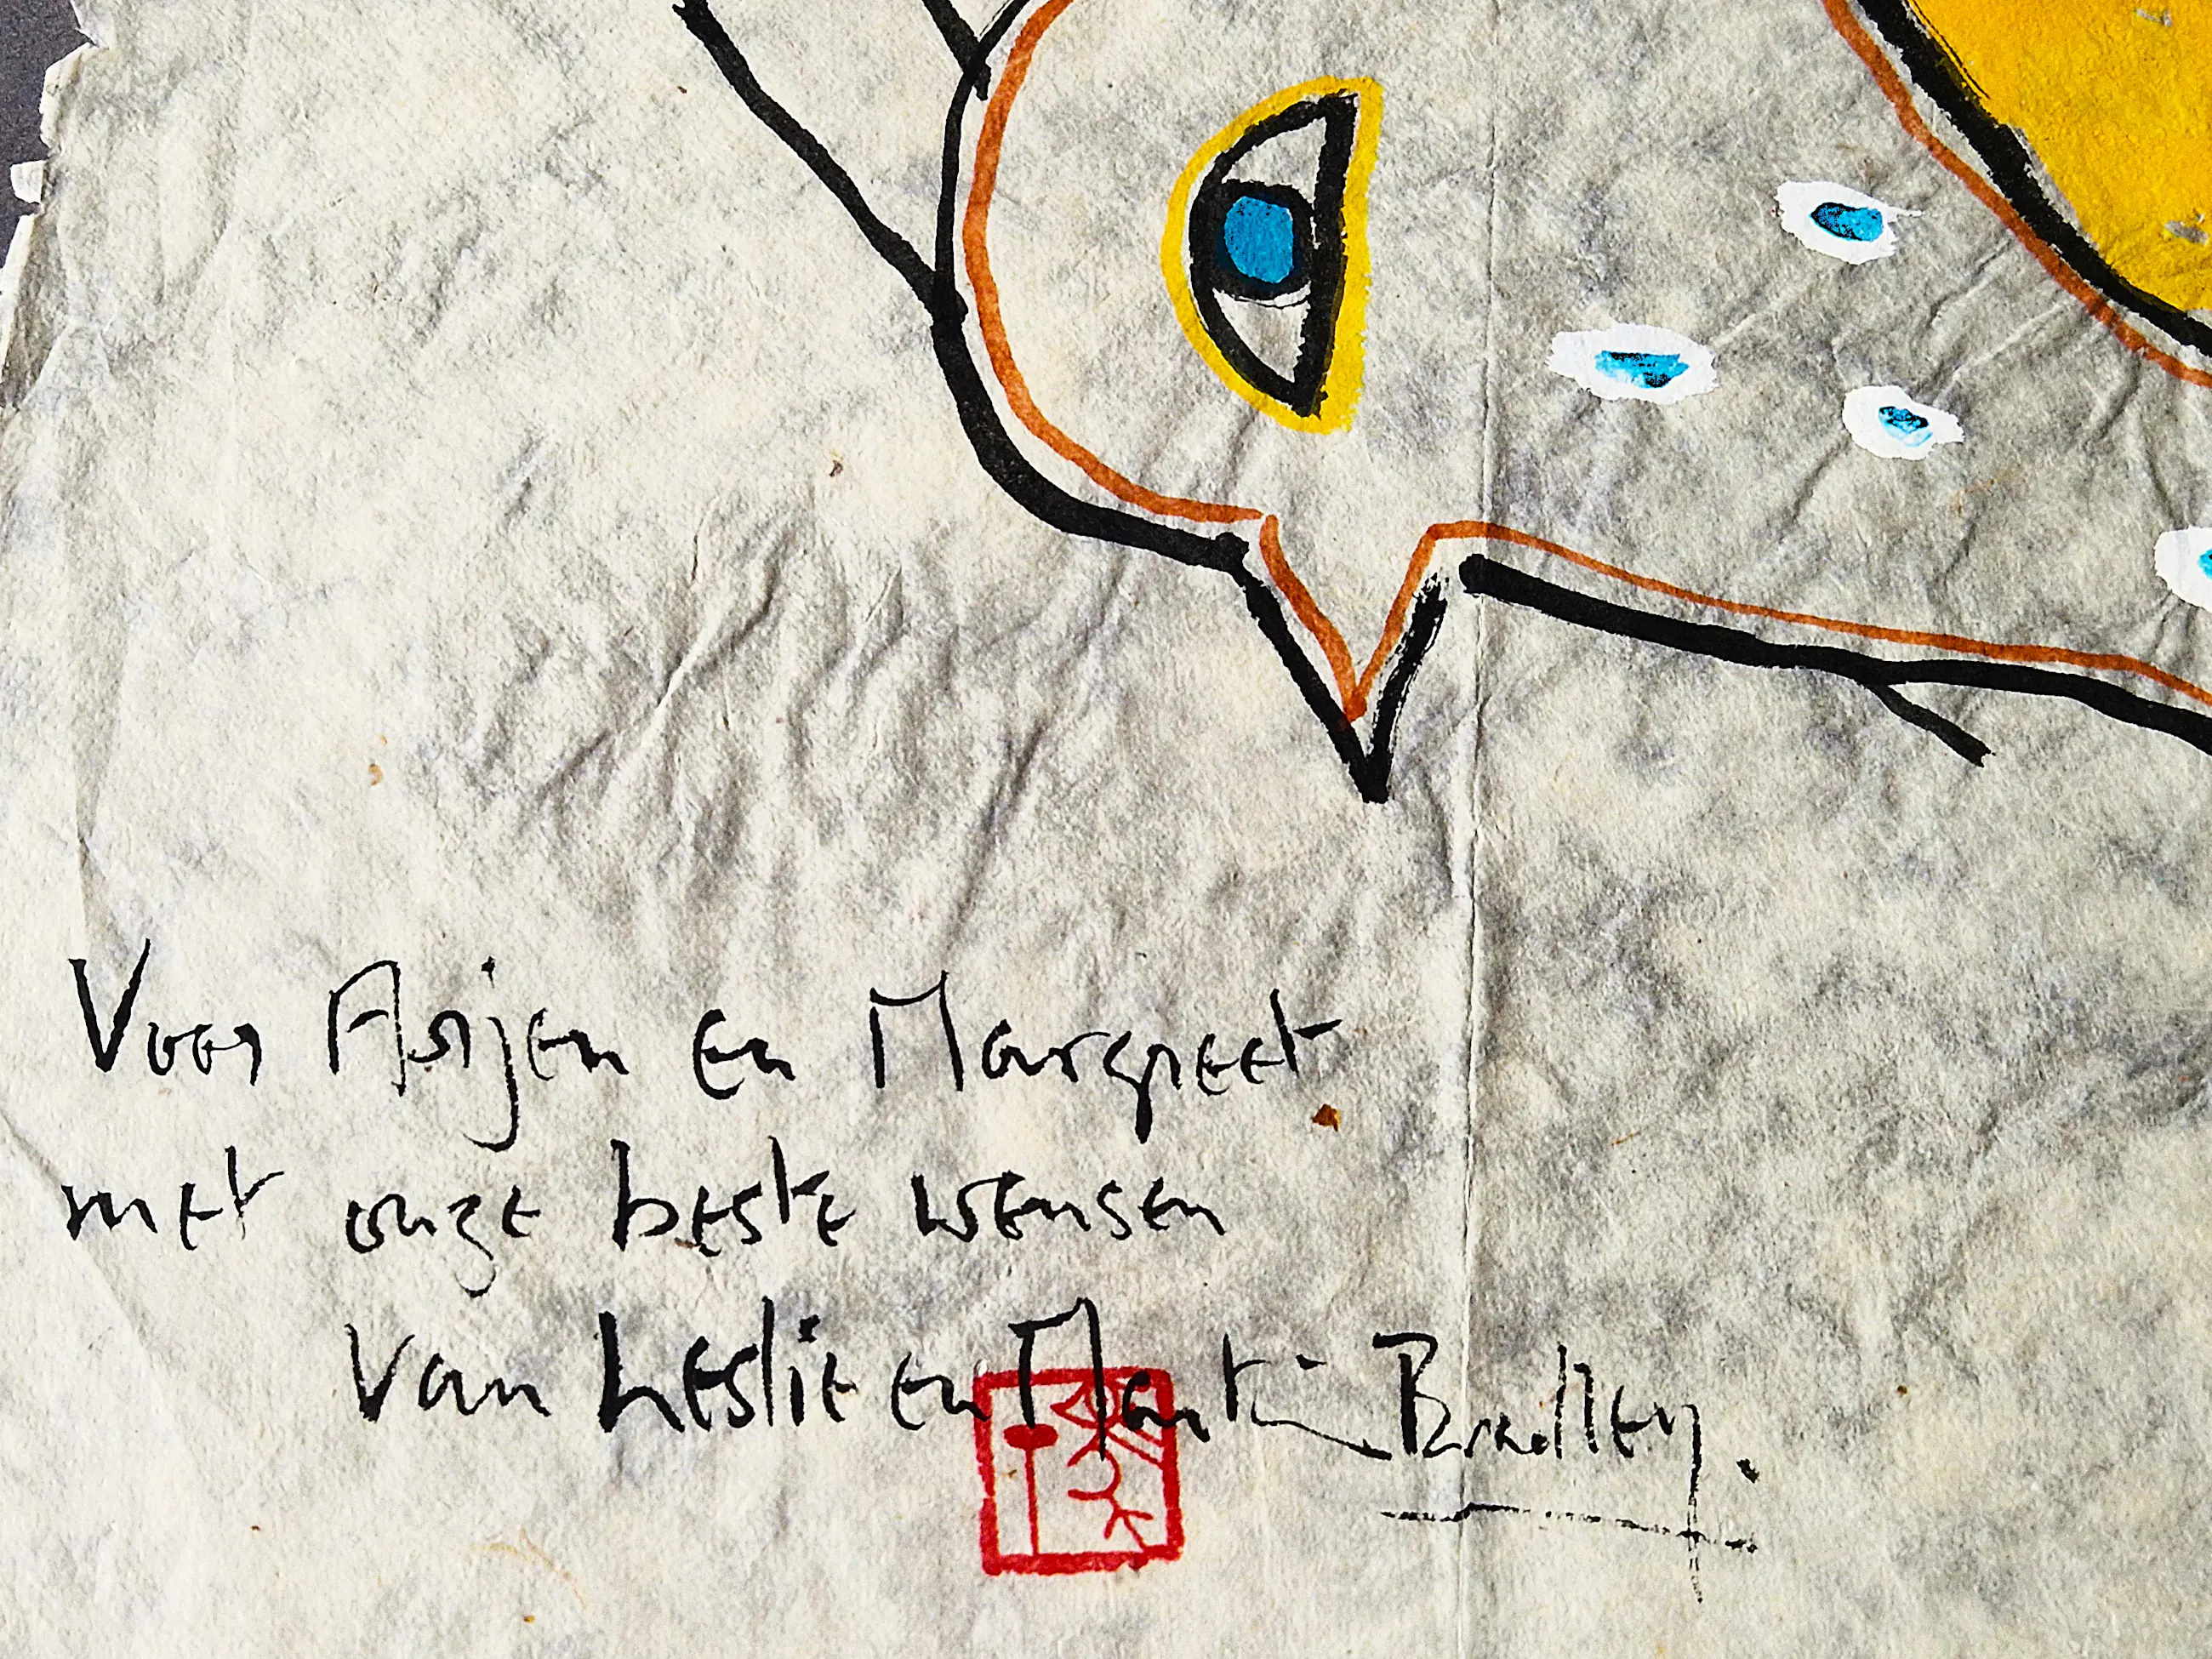 Voor Arjen en Margreet
met onze beste wensen
van Leslie en Martin Bradley.